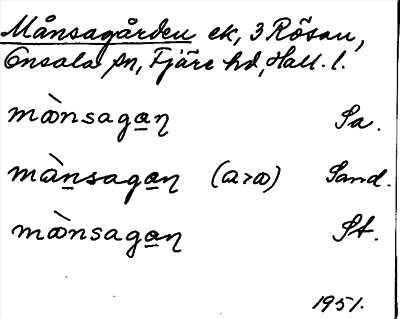 Månsagården ek, 3 Rösan,
Onsala sn, Fjäre hd, Hall. l.
mònsaga̲ŋ Sa.
màn̲saga̲ŋ (a>o) Sand.
mònsaga̲ŋ St.
1951.